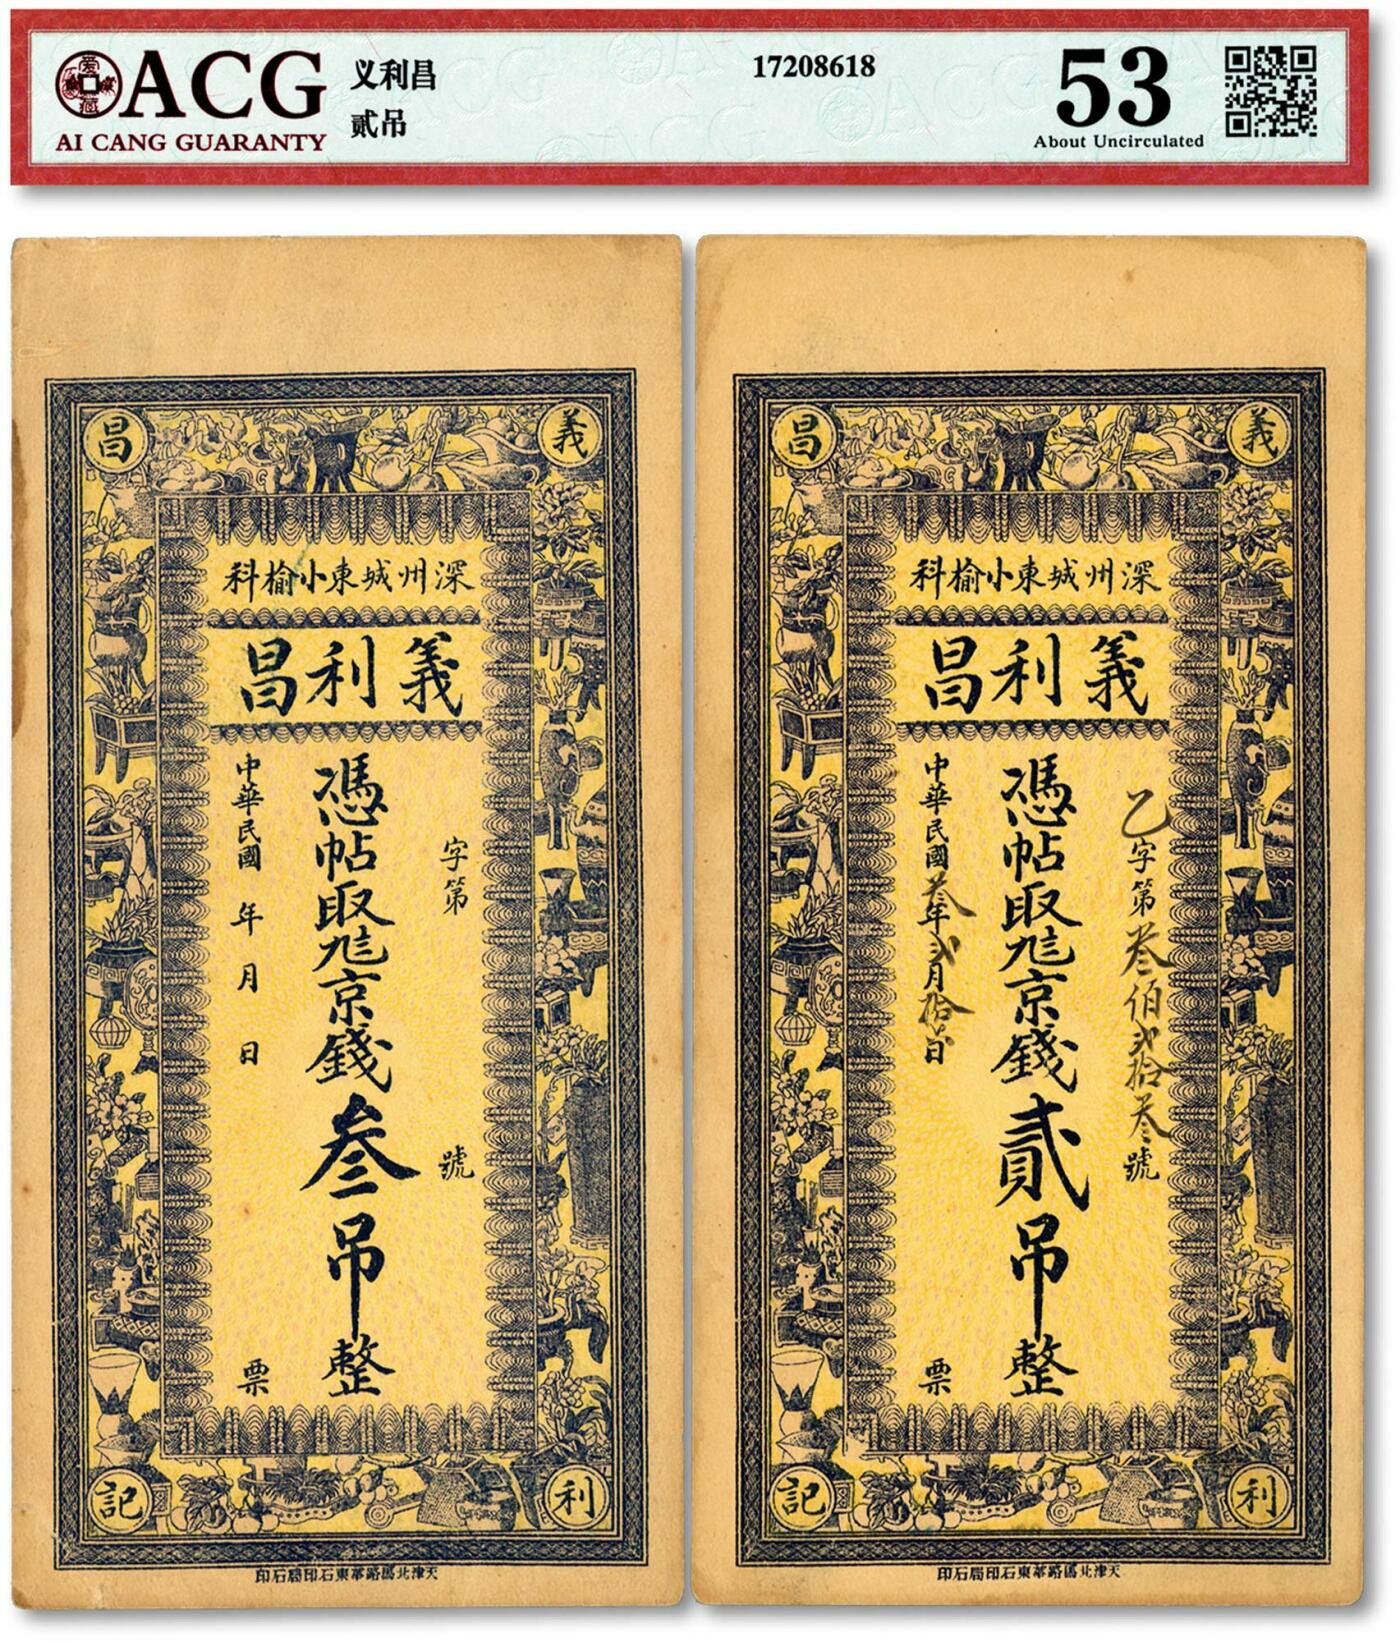 ACG
AI CANG GUARANTY
爱藏
义利昌
贰吊
17208618
53
About Uncirculated
義
昌
深州城東小榆科
義利昌
字第
號
憑帖取兑京錢叁吊整
中華民國 年 月 日
票
利
記
天津北馬路華東石印局石印
義
昌
深州城東小榆科
義利昌
乙字第叁佰弍拾叁號
憑帖取兑京錢貳吊整
中華民國叁年弍月拾日
票
利
記
天津北馬路華東石印局石印